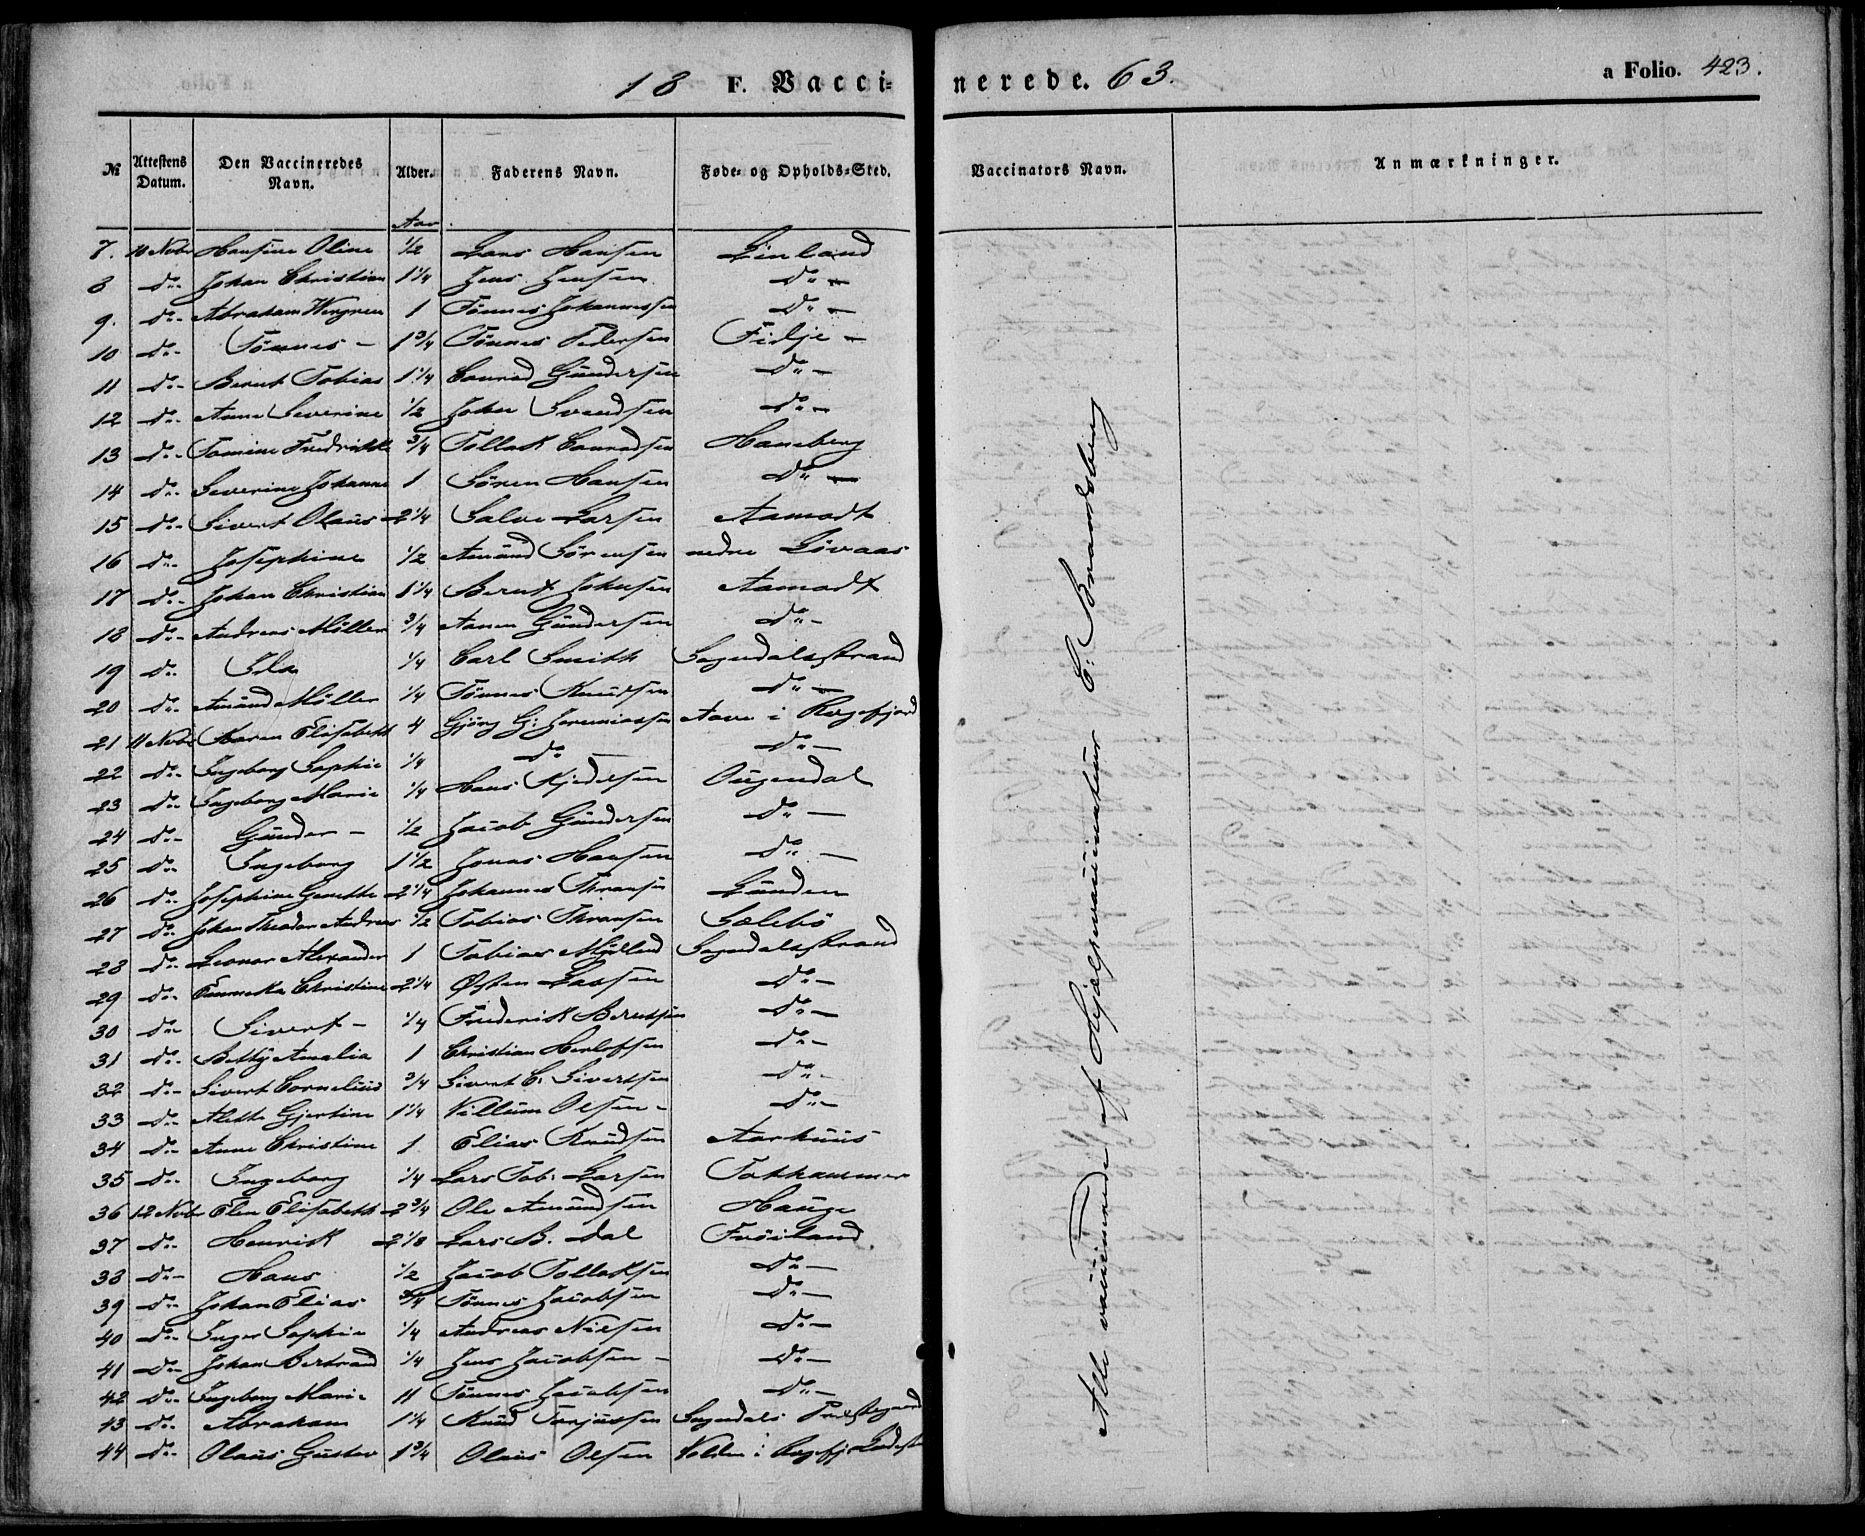 18 F. Vaccinerede. 63. a Folio. 423.
№ Attestens Datum. Den Vaccineredes Navn. Alder. Faderens Navn. Føde- og Opholds-Sted. Vaccinators Navn. Anmærkninger.
Aar
7. 10 Nvbr Hansine Oline 1/2 Lars Hansen Linland
8 do Johan Christian 1 1/4 Jens Jensen do
9. do Abraham 1 Tönnes Johannessen do
10 do Tönnes 1 3/4 Tönnes Pedersen Fidje
11 do Bernt Tobias 1 1/4 Conrad Gundersen do
12 do Anne Severine 1/2 John Svendsen do
13 do Tomine Fredrikke 3/4 Tollak Conradsen Haneberg
14 do Severine Johanne 1 Sören Hansen do
15 do Sivert Olaus 2 1/4 Salve Larsen Aamodt
16 do Josephine 1/2 Amund Sörensen nedre Livaas
17 do Johan Christian 1 1/4 Bernt Johnsen Aamodt
18 do Andreas Möller 3/4 Aanen Gundersen do
19 do Ida 1/4 Carl Smith Sogndalsstrand
20 do Amund Möller 1/4 Tönnes Knudsen do
21 11 Nvbr Karen Elisabeth 4 Gjörg G: Jeremiassen Aave i Regefjord
22 do Ingeborg Sophie 1/4 do do
23 do Ingeborg Marie 1/4 Hans Kjedelsen Ougendal
24 do Gunder 1/2 Jacob Gundersen do
25 do Ingeborg 1 1/2 Jonas Hansen do
26 do Josephine 2 1/4 Johannes Lunden
27 do Johan Theodor Andreas 1/2 Tobias Sælebö
28 do Leonor Alexander 1 Tobias Mydland Sogndalsstrand
29 do Christine 2 1/4 Østen Larsen do
30 do Sivert 1/4 Frederik Berntsen do
31 do Betty Amalia 1 Christian Herlofsen do
32 do Sivert Cornelius 3/4 Sivert C. Sivertsen do
33 do Alette Gjertine 1 1/4 Villum Olsen do
34 do Anne Christine 1 Elias Knudsen Aarhuus
35 do Ingeborg 1/4 Lars Tob: Larsen Tothammer
36 12 Nvbr Elen Elisabeth 2 3/4 Ole Amundsen Hauge
37 do Henrik 2 1/8 Lars B. Dal Fröiland
38 do Hans 1/2 Jacob Tollaksen do
39 do Johan Elias 3/4 Tönnes Jacobsen do
40 do Inger Sophie 1/4 Andreas Nilsen do
41 do Johan Bertrand 1/4 Jens Jacobsen do
42 do Ingeborg Marie 11 Tönnes Jacobsen do
43 do Abraham 1 1/4 Knud Torjussen Sogndals Prestegaard
44 do Olaus Gustav 1 3/4 Olaus Olsen Volden i Regefj
Alle vaccinerede af Hjælpevaccinateur C: Brandsberg